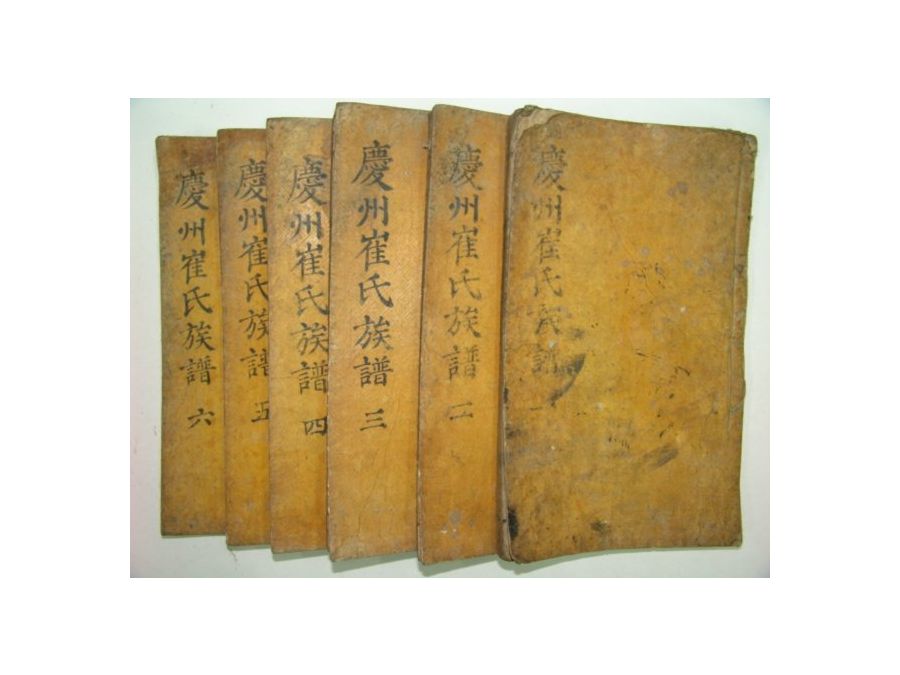 慶州崔氏族譜
慶州崔氏族譜 二
慶州崔氏族譜 三
慶州崔氏族譜 四
慶州崔氏族譜 五
慶州崔氏族譜 六